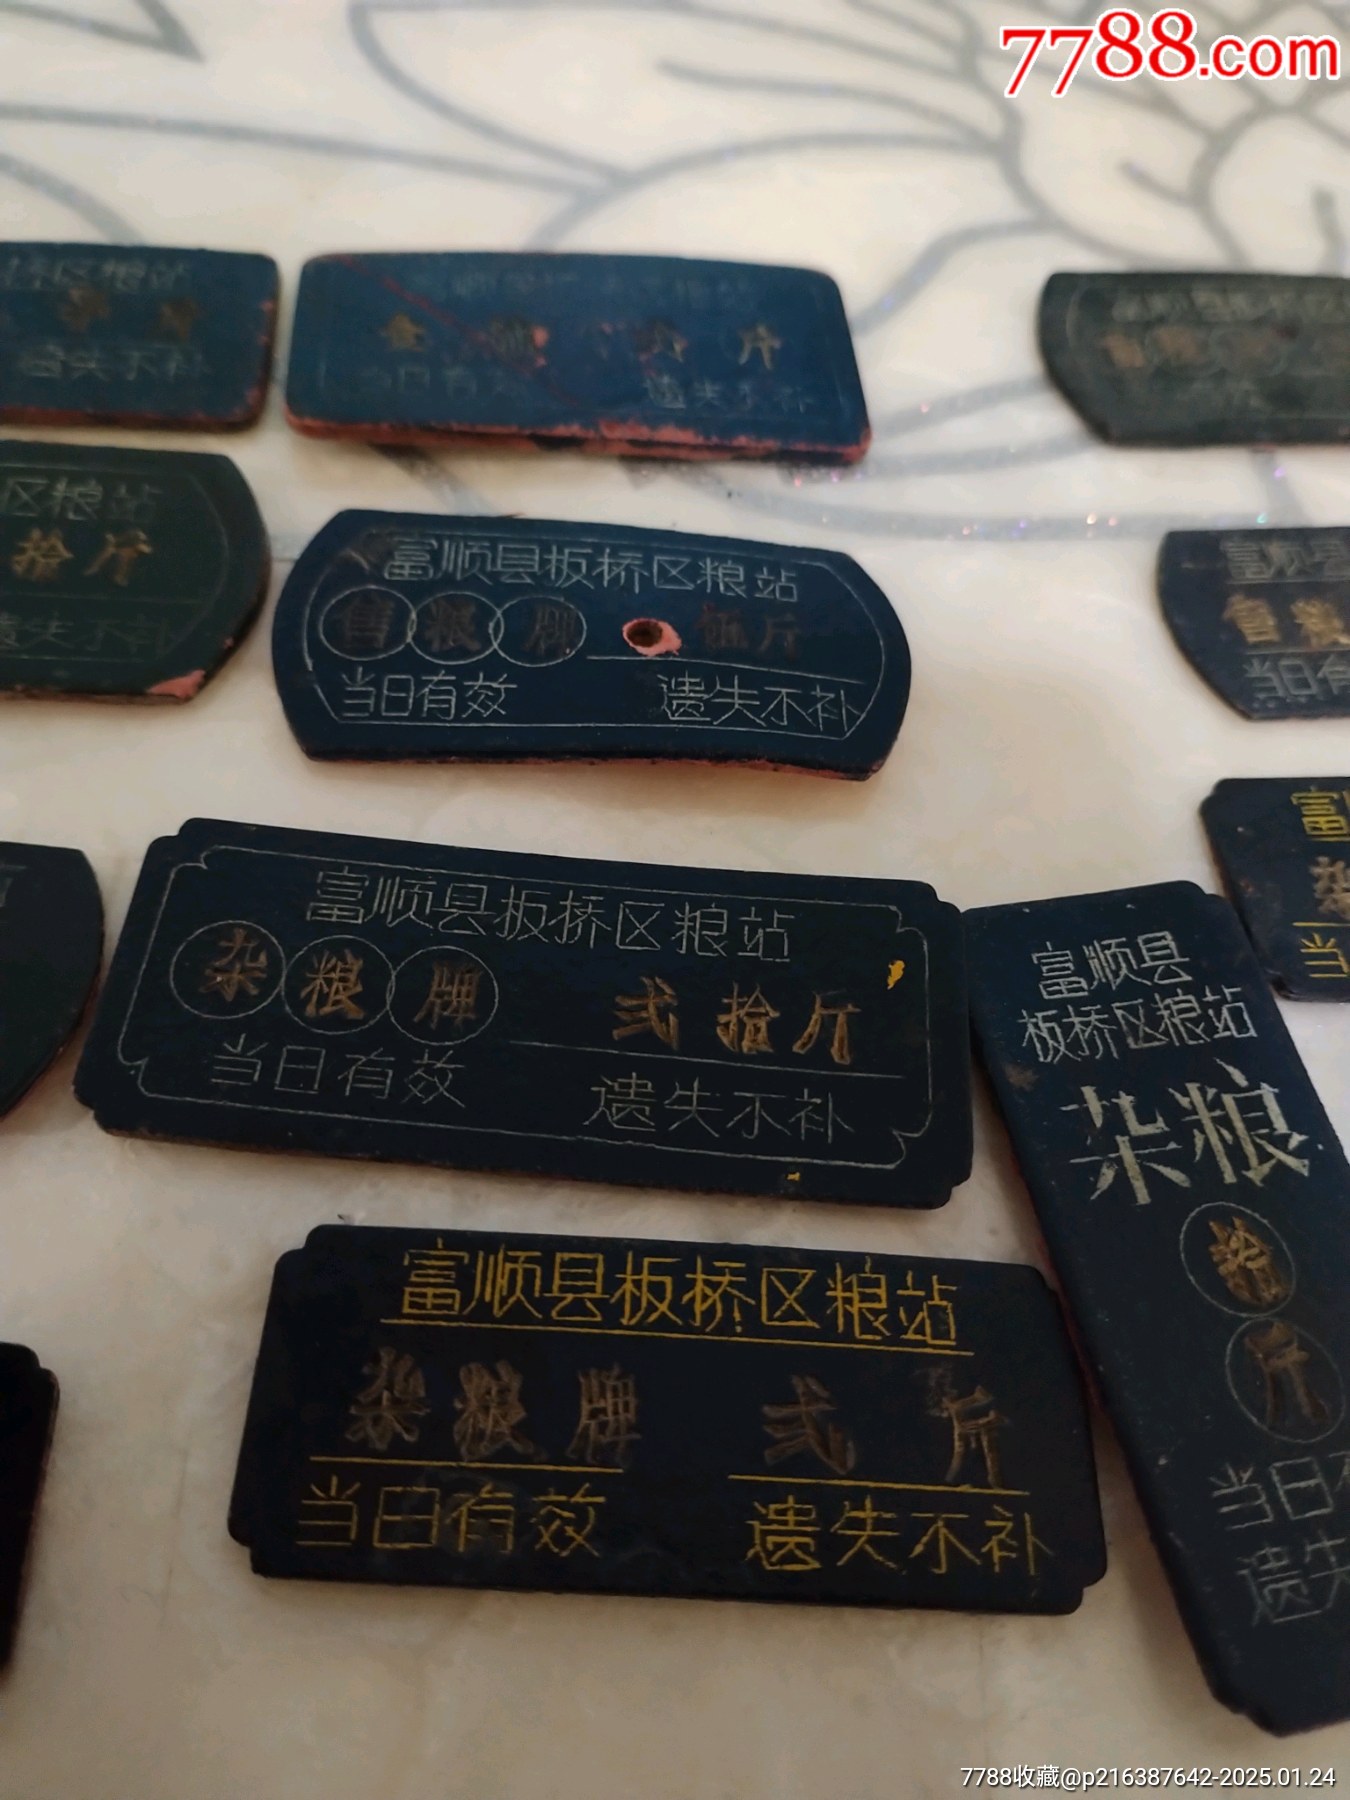 7788.com
区粮站
遗失不补
斤
当日有
遗失不补
区粮站
拾斤
遗失不补
富顺县板桥区粮站
售粮牌 伍斤
当日有效 遗失不补
富顺县
售粮
当日有
富顺县板桥区粮站
杂粮牌 弍拾斤
当日有效 遗失不补
富顺县
板桥区粮站
杂粮
拾
斤
当日
遗失
富
杂
当
富顺县板桥区粮站
杂粮牌 弍斤
当日有效 遗失不补
7788收藏@p216387642-2025.01.24